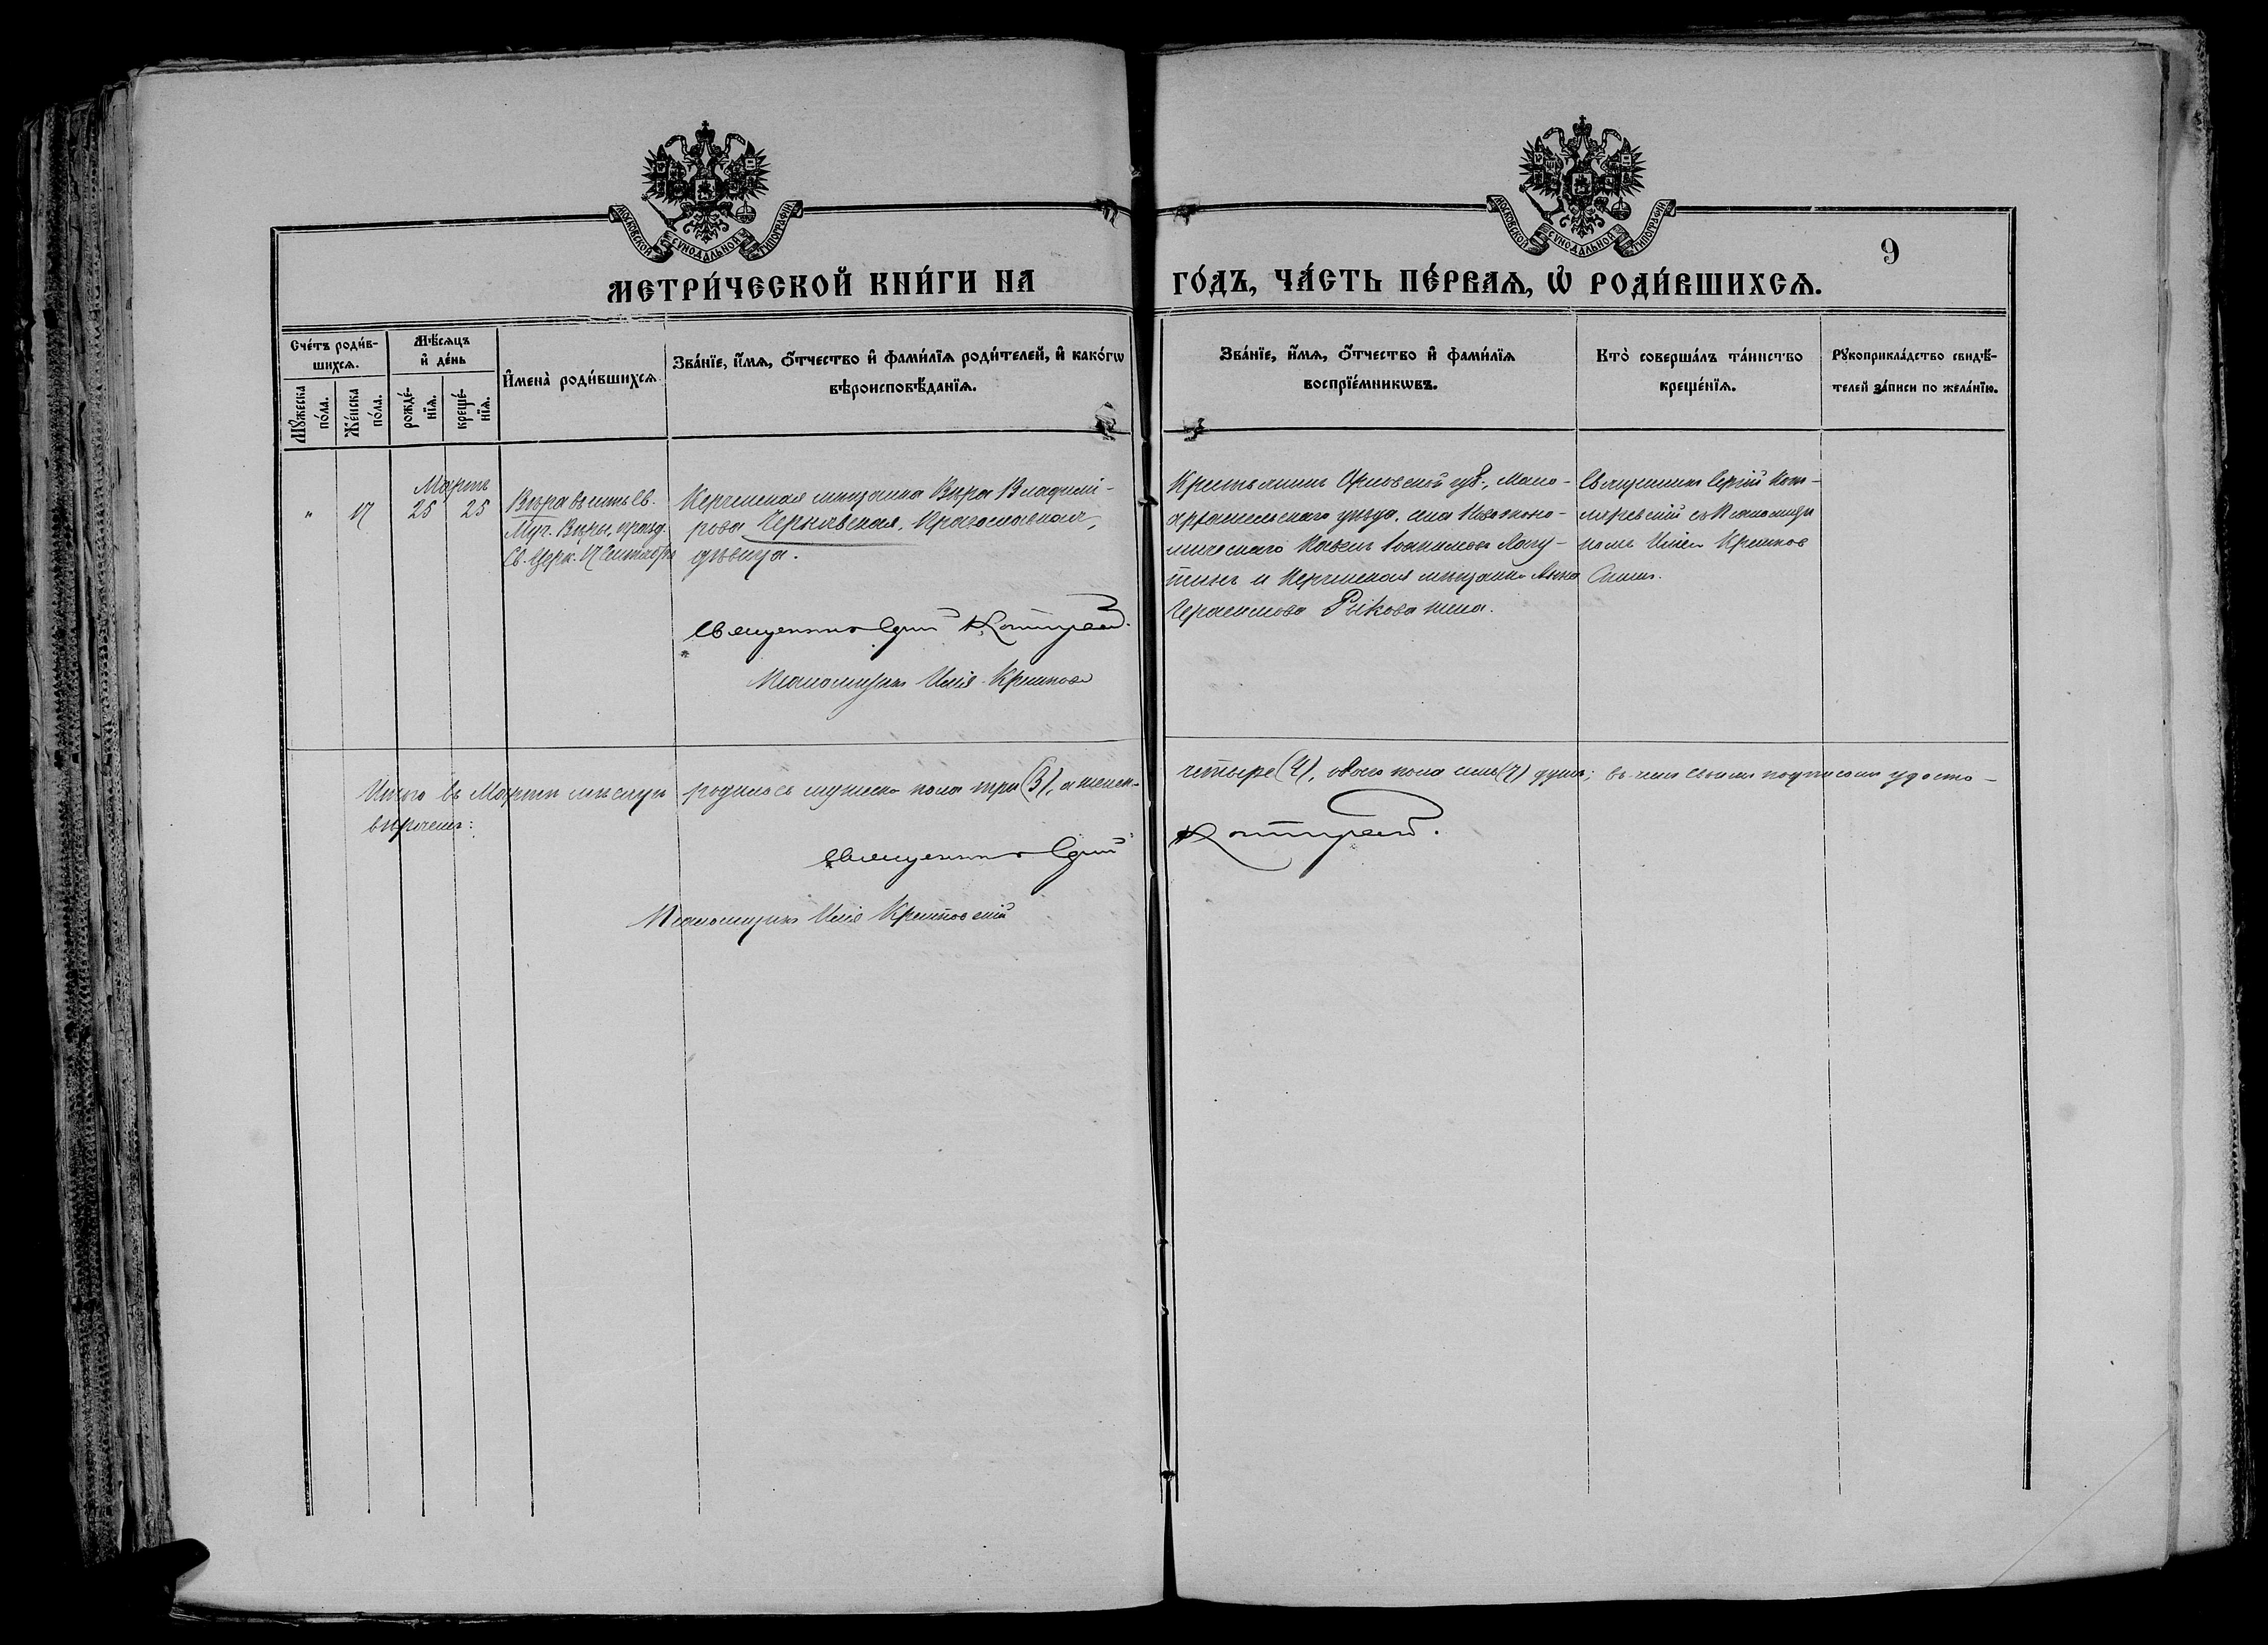 МОСКОВСКОЙ СѴНОДАЛЬНОЙ ТИПОГРАФІИ
МОСКОВСКОЙ СѴНОДАЛЬНОЙ ТИПОГРАФІИ
9
МЕТРИ́ЧЕСКОЙ КНИ́ГИ НА ГО́ДЪ, ЧА́СТЬ ПЕ́РВАѦ, Ѽ РОДИ́ВШИХСѦ.
Сче́тъ роди́в-
шихсѧ.
Мꙋ́жеска по́ла.
Же́нска по́ла.
Мѣ́сѧцъ
и҆ де́нь
рожде́-нїѧ.
креще́-нїѧ.
И҆мена̀ роди́вшихсѧ
Зва́нїе, и҆́мѧ, ѻ҆́тчество и҆ фами́лїѧ роди́телей, и҆ како́гѡ
вѣроисповѣ́данїѧ.
Зва́нїе, и҆́мѧ, ѻ҆́тчество и҆ фами́лїѧ
воспрїе́мникѡвъ.
Кто̀ соверша́лъ та́инство
креще́нїѧ.
Рꙋкоприкла́дство свидѣ́-
телей за́писи по жела́нїю.
Мартъ
" 17 25 25
Вѣра въ честь Св.
Муч. Вѣры, празд.
Св. Церк. 17 Сентября
Керченская мѣщанка Вѣра Владимі-
рова Чернявская, Православная,
дѣвица.
Священникъ Сергій
Псаломщикъ Илія
Крестьянинъ Орловской губ., Мало-
архангельскаго уѣзда, села
Павелъ Іоакимовъ Лагу-
тинъ и Керченская мѣщанка Анна
Герасимова Рыкова жена.
Священникъ Сергій Кот-
ляревскій съ Псаломщи-
комъ Иліею Крестов
скимъ.
Итого въ Мартѣ мѣсяцѣ родилось мужеска пола три (3), а женск. четыре (4), обоего пола семь (7) душъ; въ чемъ своими подписами удосто-
вѣряемъ:
Священникъ Сергій
Псаломщикъ Илія Крестовскій